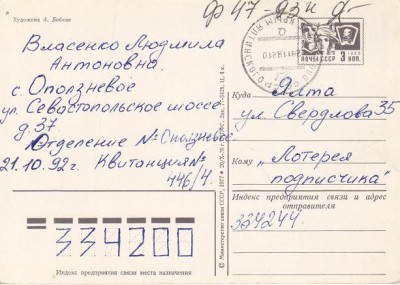 Художник А. Бобков
Ф 47-93 к
Власенко Людмила
Антоновна
с. Оползневое
ул. Севастопольское шоссе
д. 37
Отделение № Оползневое
21.10.92г. Квитанция №
446/4.
334200
Индекс предприятия связи места назначения
© Министерство связи СССР, 1977
ПОЧТА СССР
3
КОП.
Куда Ялта
ул. Свердлова 35
Кому „Лотерея
подписчика"
Индекс предприятия связи и адрес
отправителя
334244.